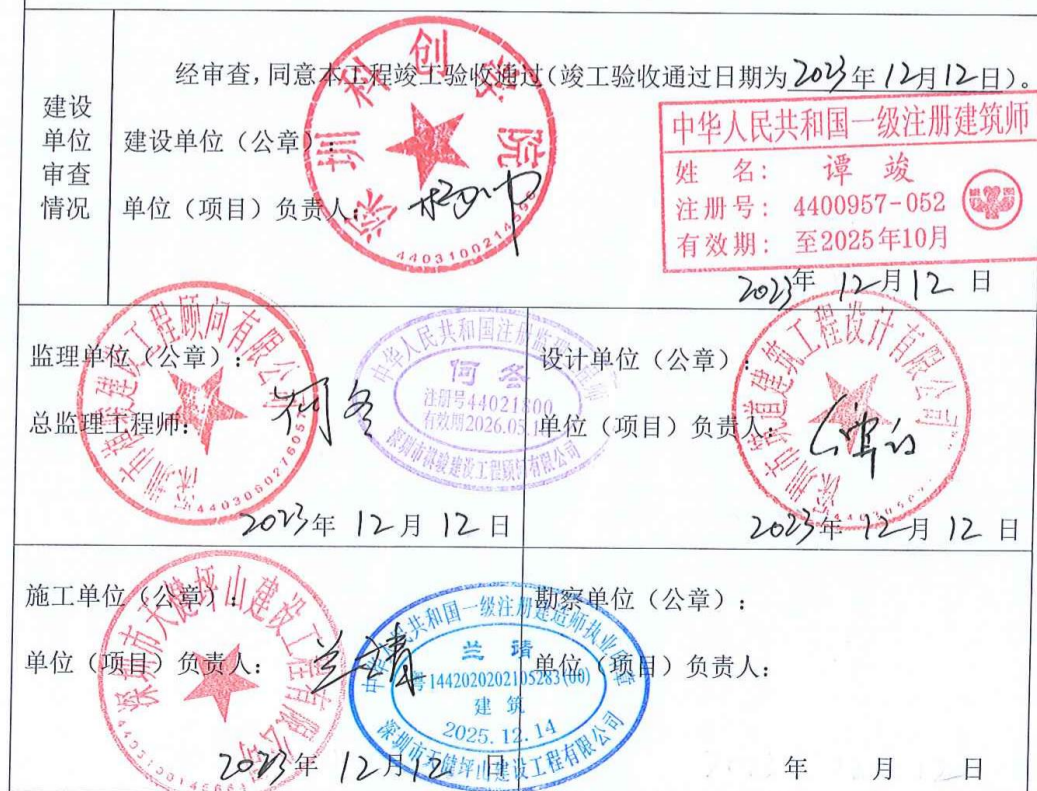 建设单位审查情况
经审查，同意本工程竣工验收通过（竣工验收通过日期为2023年12月12日）。
建设单位（公章）：
单位（项目）负责人：
深圳科创学院
中华人民共和国一级注册建筑师
姓 名： 谭 竣
注册号： 4400957-052
有效期： 至2025年10月
2023年 12月12 日
监理单位（公章）：
总监理工程师： 何冬
建设工程顾问有限公司
中华人民共和国注册监理工程师
何冬
注册号44021800
有效期2026.05.14
2023年 12月 12日
设计单位（公章）：
单位（项目）负责人：
建筑工程设计有限公司
2023年 12月 12 日
施工单位（公章）：
单位（项目）负责人： 兰靖
深圳市天健坪山建设工程有限公司
中华人民共和国一级注册建造师执业印章
兰 靖
号1442020202105283(00)
建 筑
2025.12.14
深圳市天健坪山建设工程有限公司
2023年 12月12 日
勘察单位（公章）：
单位（项目）负责人：
年 月 日